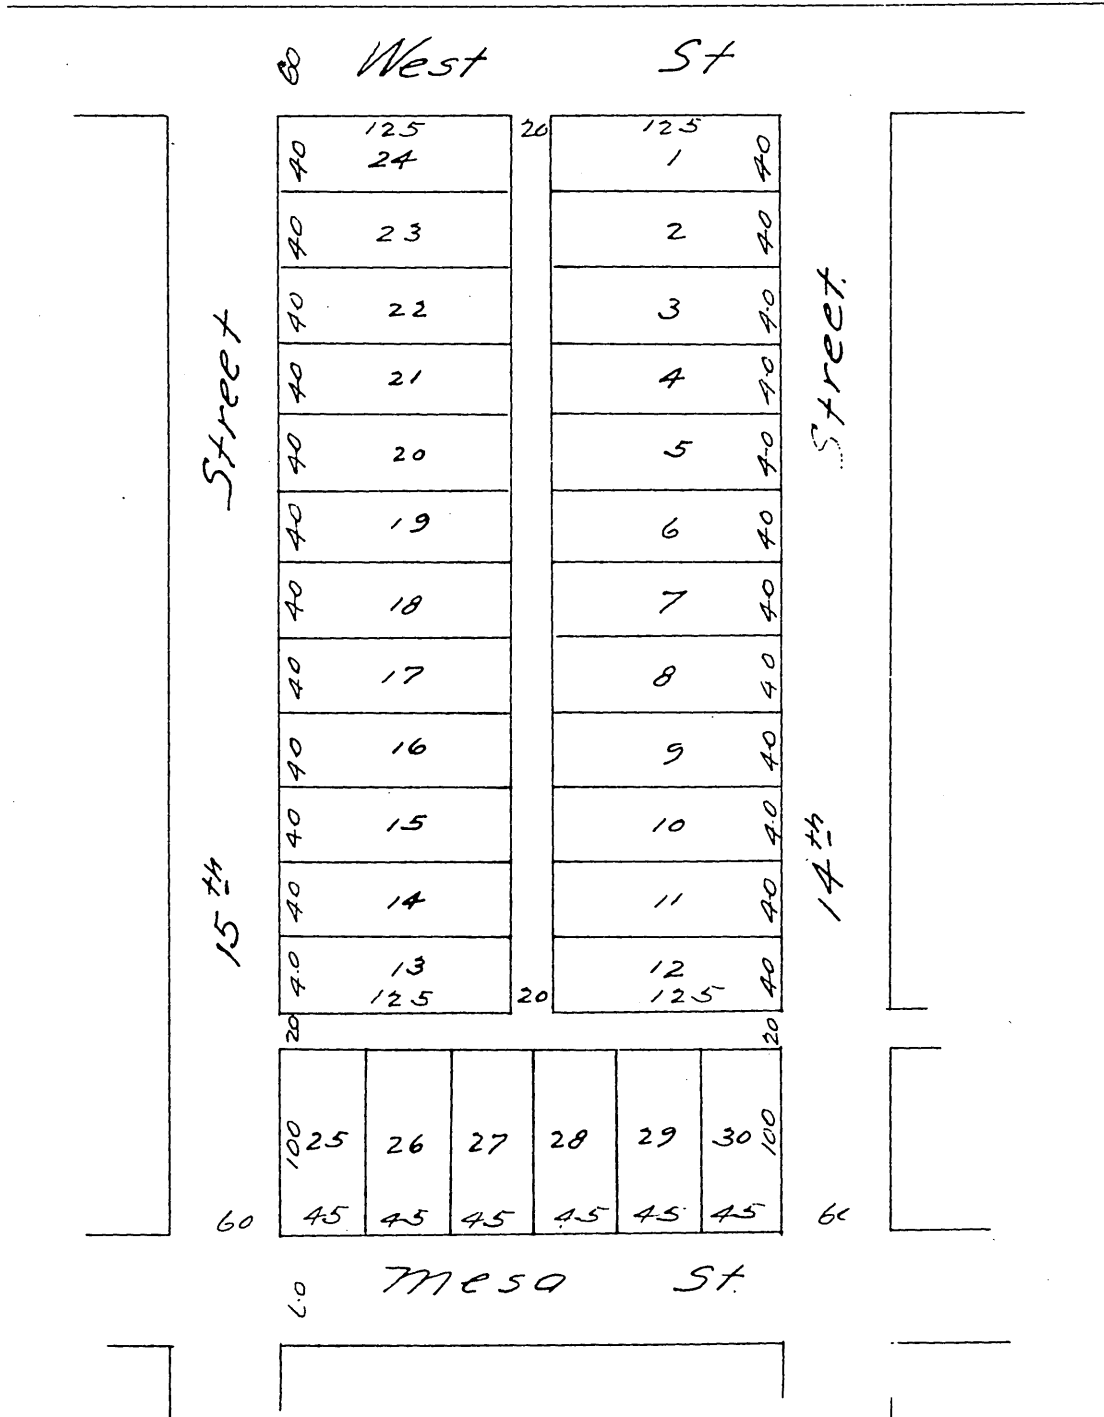 60 West St
125 20 125
40 24 1 40
40 23 2 40
40 22 3 40
40 21 4 40
40 20 5 40
40 19 6 40
40 18 7 40
40 17 8 40
40 16 9 40
40 15 10 40
40 14 11 40
40 13 12 40
125 20 125
15th Street
14th Street.
20 20
100 25 26 27 28 29 30 100
60 45 45 45 45 45 45
60 Mesa St.